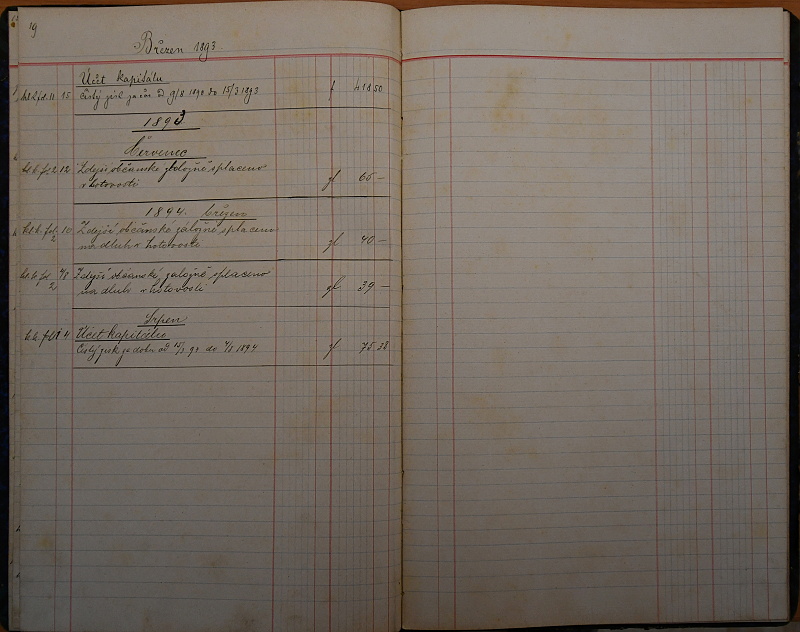 19
Březen 1893.
Účet kapitálu
hl. k. fol. 11 15 čistý zisk za čas od 9/8 1890 do 15/3 1893 f 418 50
1893
Červenec
hl. k. fol. 2 12 Zdejší občanské záložně splaceno
v hotovosti zl 65 –
1894. březen
hl. k. fol. 2 10 Zdejší občanské záložně splaceno
na dluh v hotovosti zl 40 –
hl. k. fol. 2 4/8 Zdejší občanské záložně splaceno
na dluh v hotovosti zl 39 –
Srpen
4 Účet kapitálu
čistý zisk za dobu od 15/3 93 do 4/8 1894 zl 75 38